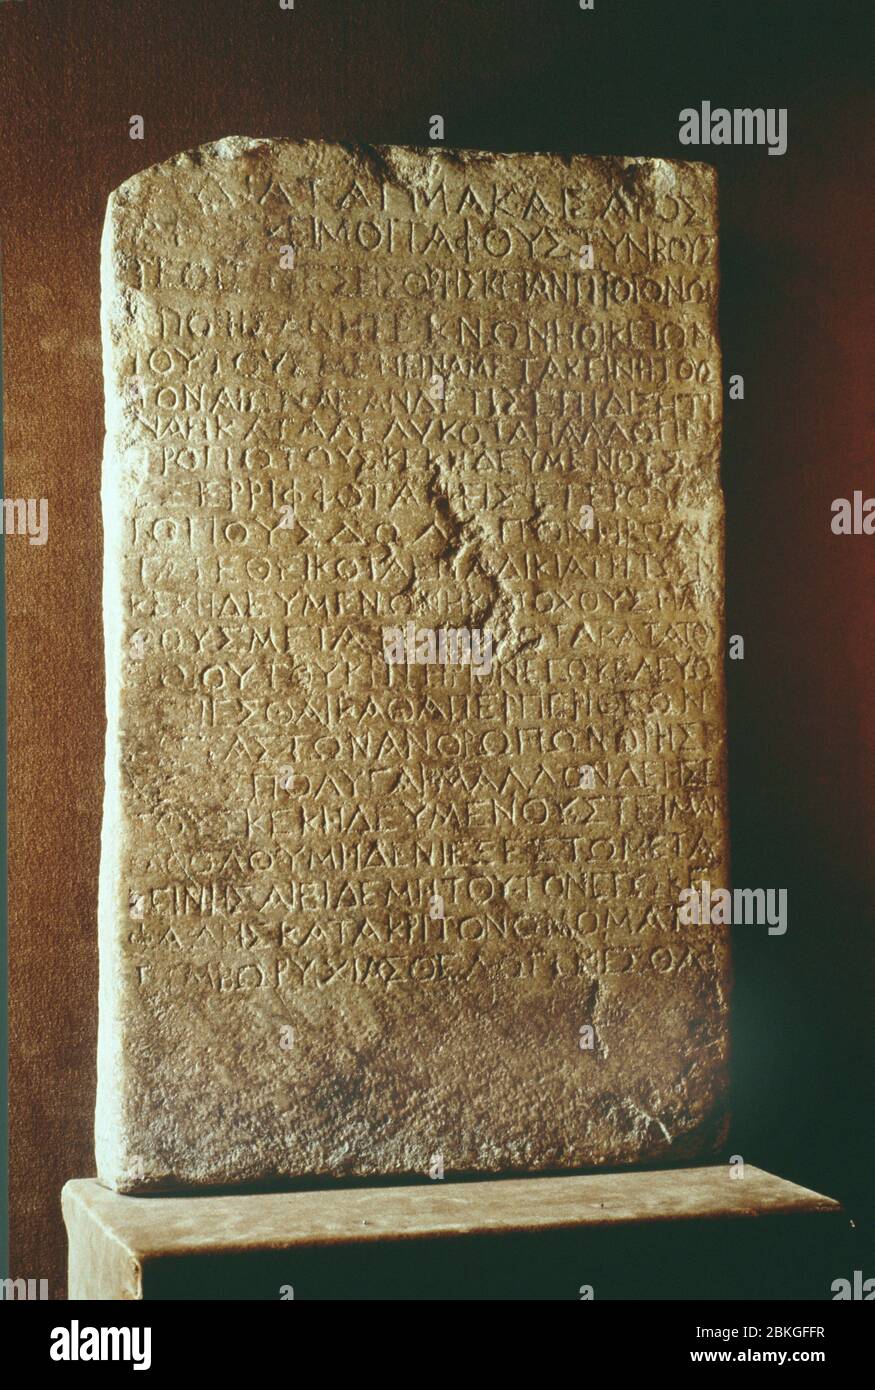 ΔΙΑΤΑΓΜΑ ΚΑΙΣΑΡΟΣ
ΜΟΙ ΤΑΦΟΥΣ ΤΥΝΒΟΥΣ
ΘΡΗΣΚΕΙΑΝ ΠΡΟΓΟΝΩΝ
ΕΠΟΙΗΣΑΝ Η ΤΕΚΝΩΝ Η ΟΙΚΕΙΩΝ
ΤΟΥΤΟΥΣ ΜΕΝΕΙΝ ΑΜΕΤΑΚΕΙΝΗΤΟΥΣ
ΤΟΝ ΑΙΩΝΑ ΕΑΝ Δ ΤΙΣ ΕΠΙΔΙΞΗ ΤΙ
ΝΑ Η ΚΑΤΑΛΕΛΥΚΟΤΑ Η ΑΛΛΩ ΤΙΝΙ
ΤΡΟΠΩ ΤΟΥΣ ΚΕΚΗΔΕΥΜΕΝΟΥΣ
ΕΞΕΡΡΙΦΦΟΤΑ Η ΕΙΣ ΕΤΕΡΟΥΣ
ΤΟΠΟΥΣ ΔΩΛΩ ΠΟΝΗΡΩ ΜΕ
ΤΑΤΕΘΕΙΚΟΤΑ ΕΠ ΑΔΙΚΙΑ ΤΗ ΤΩΝ
ΚΕΚΗΔΕΥΜΕΝΩΝ Η ΚΑΤΟΧΟΥΣ Η ΛΙ
ΘΟΥΣ ΜΕΤΑΤΕΘΕΙΚΟΤΑ ΚΑΤΑ ΤΟΥ
ΤΟΙΟΥΤΟΥ ΚΡΙΤΗΡΙΟΝ ΕΓΩ ΚΕΛΕΥΩ
ΓΕΝΕΣΘΑΙ ΚΑΘΑΠΕΡ ΠΕΡΙ ΘΕΩΝ
ΤΑΣ ΤΩΝ ΑΝΘΡΩΠΩΝ ΘΡΗΣ
ΠΟΛΥ ΓΑΡ ΜΑΛΛΟΝ ΔΕΗΣΕΙ
ΤΟΥΣ ΚΕΚΗΔΕΥΜΕΝΟΥΣ ΤΕΙΜΑΝ
ΚΑΘΟΛΟΥ ΜΗΔΕΝΙ ΕΞΕΣΤΩ ΜΕΤΑ
ΚΕΙΝΗΣΑΙ ΕΙ ΔΕ ΜΗ ΤΟΥΤΟΝ ΕΓΩ ΚΕ
ΦΑΛΗΣ ΚΑΤΑΚΡΙΤΟΝ ΟΝΟΜΑΤΙ
ΤΥΜΒΩΡΥΧΙΑΣ ΘΕΛΩ ΓΕΝΕΣΘΑΙ
alamy
Image ID: 2BKGFFR
www.alamy.com